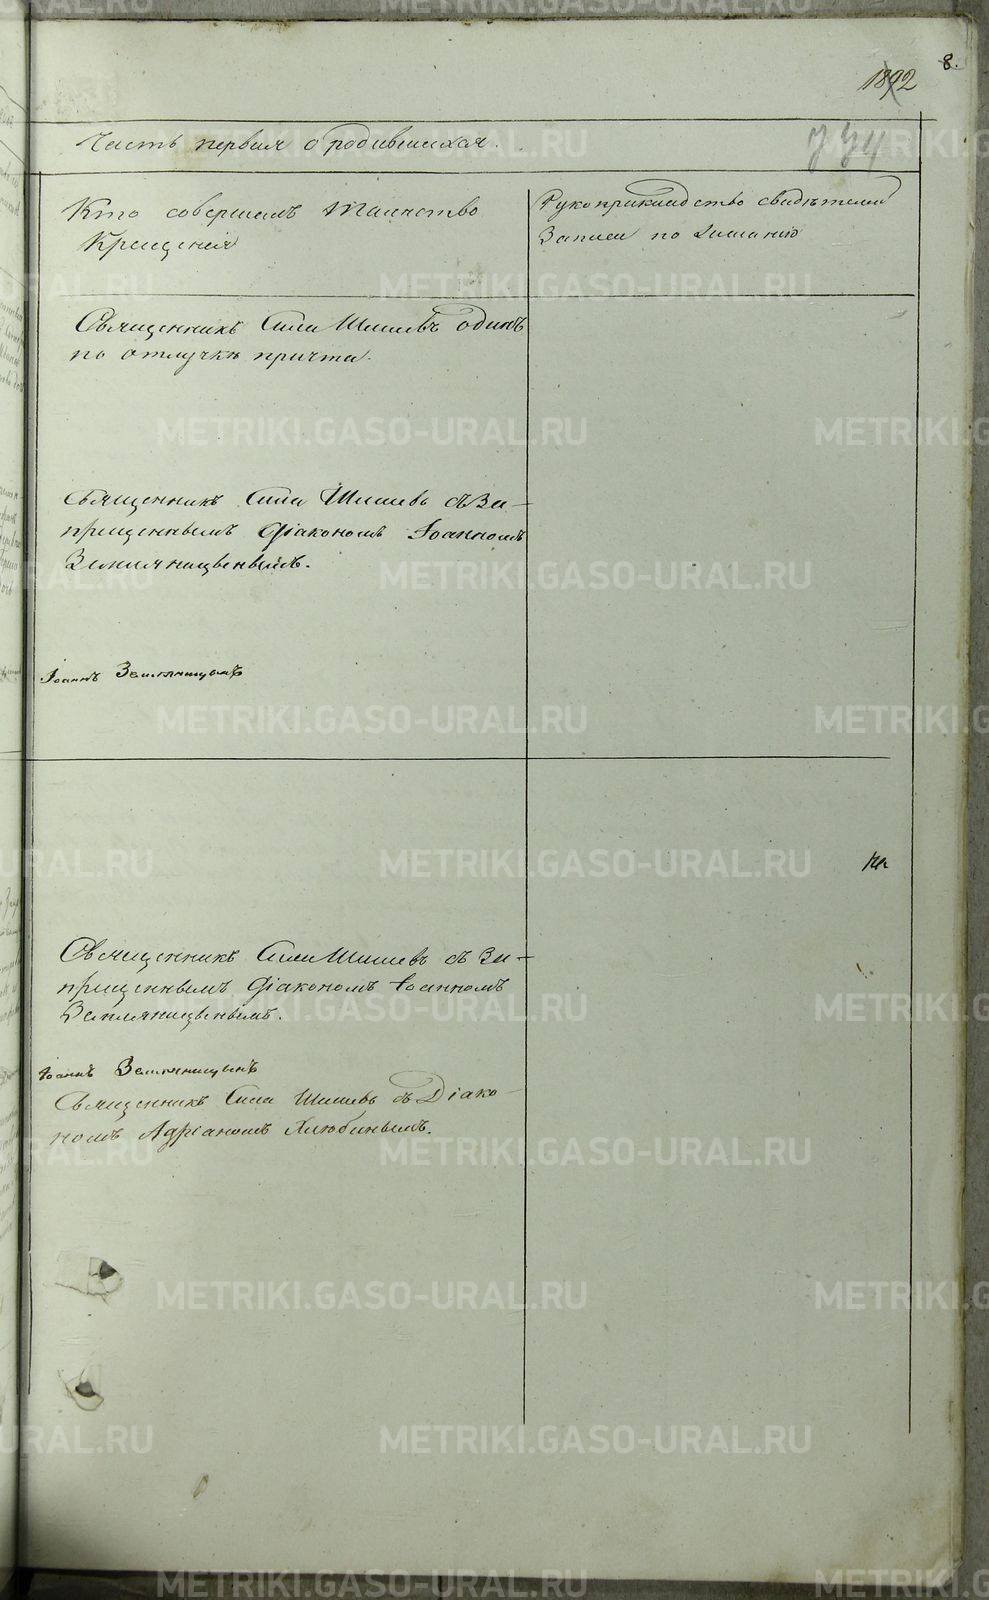 8.
1892
734
Часть первая о родившихся.
Кто совершалъ таинство
Крещенія
Рукоприкладство свидѣтелей
Записи по желанію
Священникъ Сила Шишевъ одинъ
по отлучкѣ причта.
Священникъ Сила Шишевъ съ За-
прещеннымъ Діакономъ Іоанномъ
Земляницынымъ.
Іоаннъ Земляницынъ
Священникъ Сила Шишевъ съ За-
прещеннымъ Діакономъ Іоанномъ
Земляницынымъ.
Іоаннъ Земляницынъ
Священникъ Сила Шишевъ съ Діако-
номъ Адріаномъ Хлюбинымъ.
METRIKI.GASO-URAL.RU